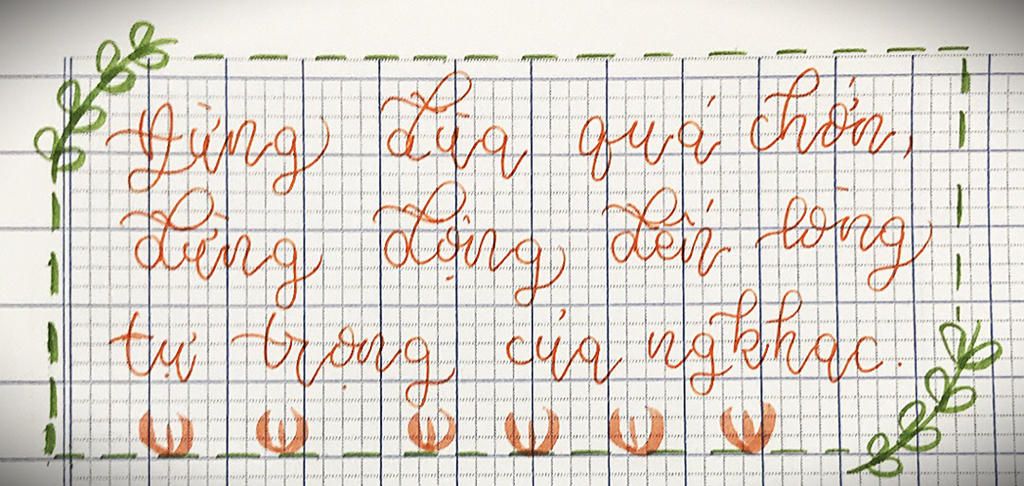 Đừng đùa quá chớn,
đừng động đến lòng
tự trọng của ng khác.